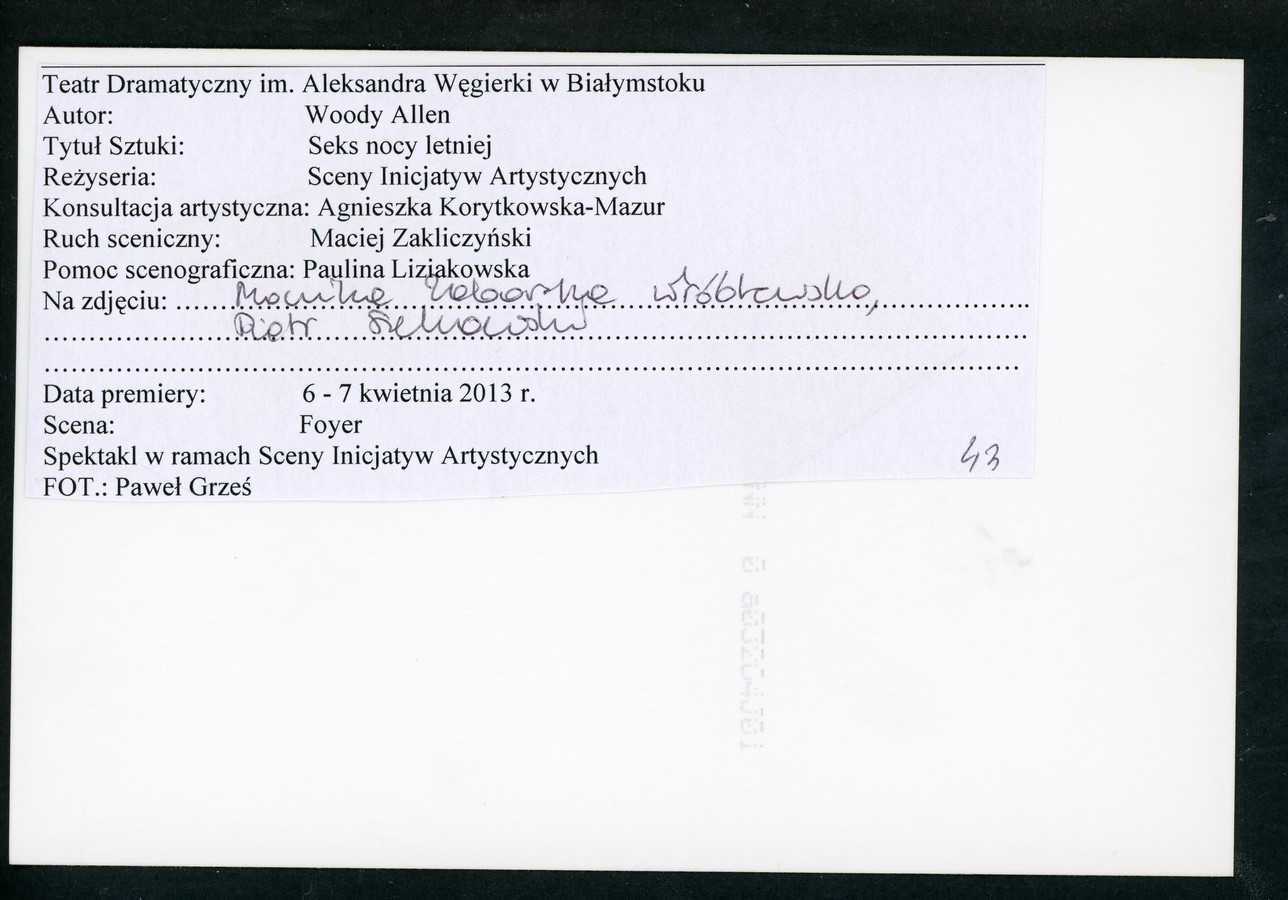 Teatr Dramatyczny im. Aleksandra Węgierki w Białymstoku
Autor: Woody Allen
Tytuł Sztuki: Seks nocy letniej
Reżyseria: Sceny Inicjatyw Artystycznych
Konsultacja artystyczna: Agnieszka Korytkowska-Mazur
Ruch sceniczny: Maciej Zakliczyński
Pomoc scenograficzna: Paulina Liziakowska
Na zdjęciu: Monika Zaborska Wróblewska,
Piotr
Data premiery: 6 - 7 kwietnia 2013 r.
Scena: Foyer
Spektakl w ramach Sceny Inicjatyw Artystycznych
43
FOT.: Paweł Grześ